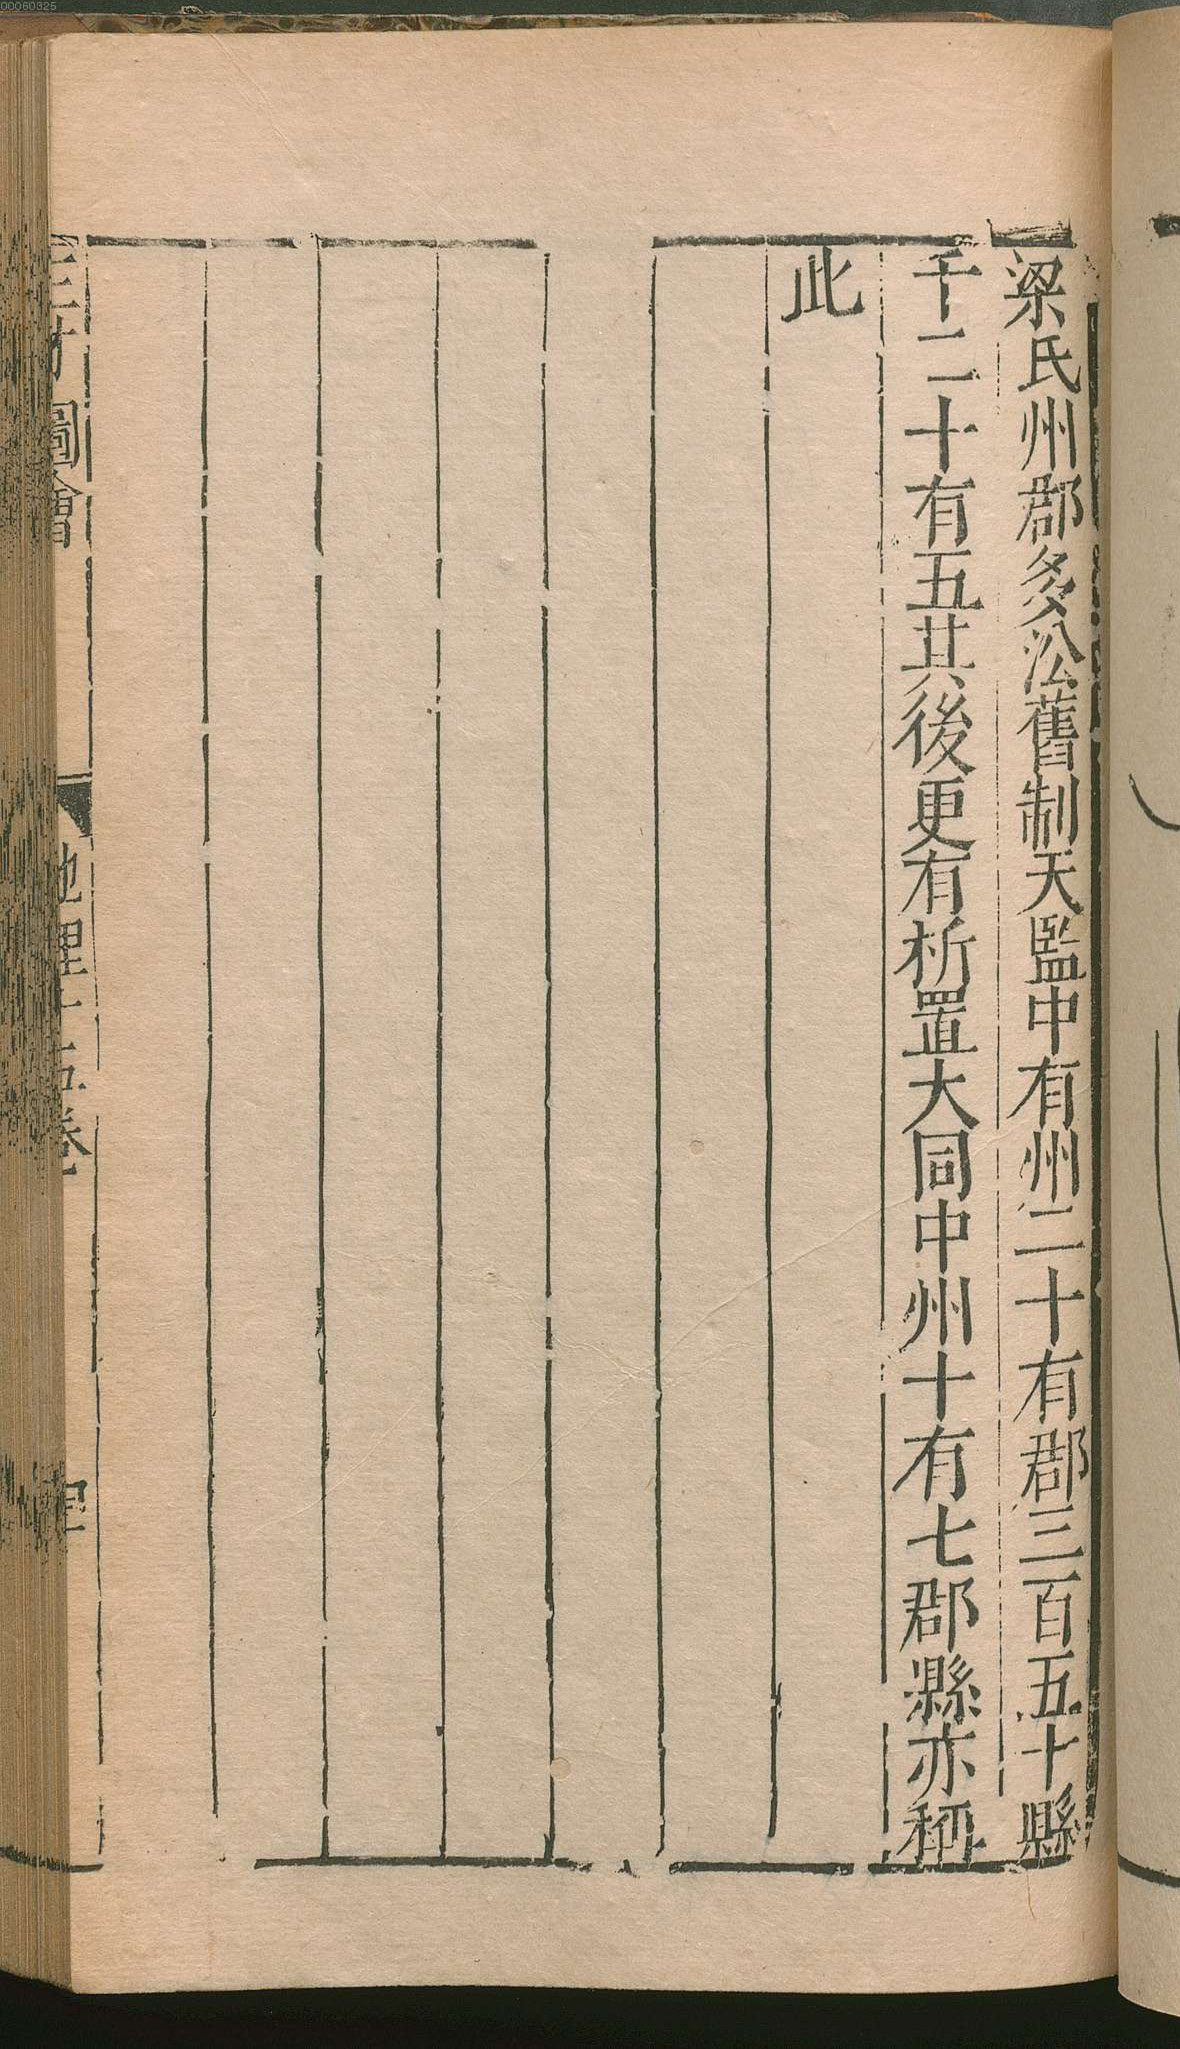 梁氏州郡多沿舊制天監中有州二十有郡三百五十縣
千二十有五其後更有析置大同中州十有七郡縣亦稱
此
三才圖會
地理十五卷
00060325